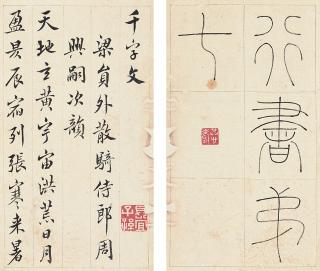 行書弟
七
千字文
梁員外散騎侍郎周
興嗣次韻
天地玄黃宇宙洪荒日月
盈昃辰宿列張寒来暑